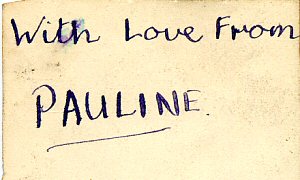 With Love From
PAULINE.